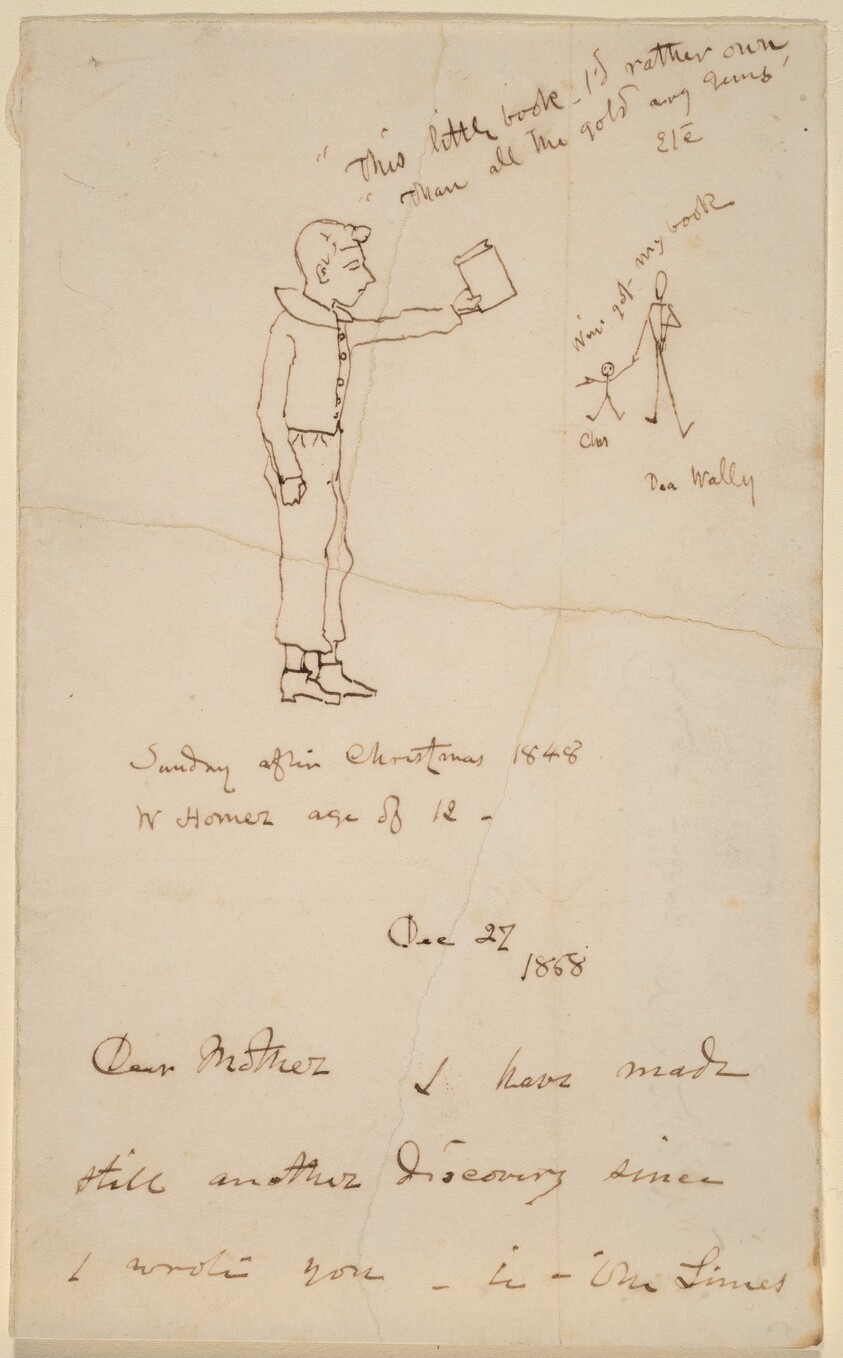 "This little book - I'd rather own
"than all the gold and gems'
Etc
Win got my book
Chs
Dea Wally
Sunday after Christmas 1848
W Homer age of 12 -
Dec 27
1868
Dear Mother I have made
still another discovery since
I wrote you - in - the Times